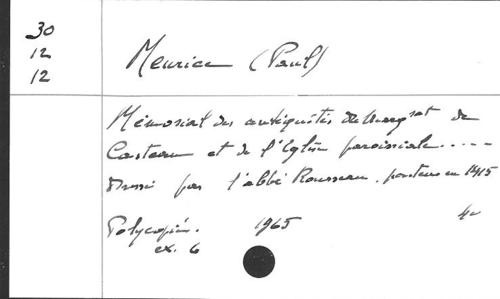 30
12
12
Meurice (Paul)
Mémorial des antiquités de de
Casteau et de l'Eglise paroissiale.....
Dressé par l'abbé Rousseau, en 1415
Polycopié. 1965 4°
ex. 6